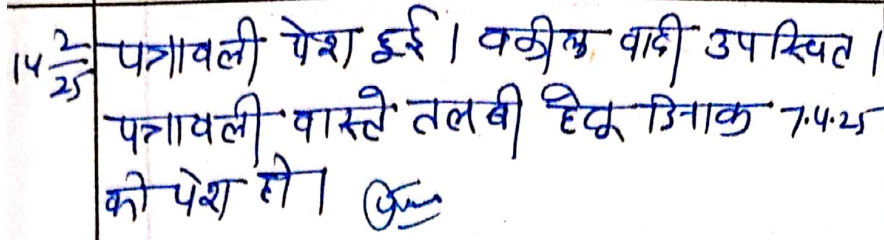 14 2/25 पत्रावली पेश हुई। वकील वादी उपस्थित।
पत्रावली वास्ते तलबी हेतू दिनाक 7.4.25
को पेश हो।